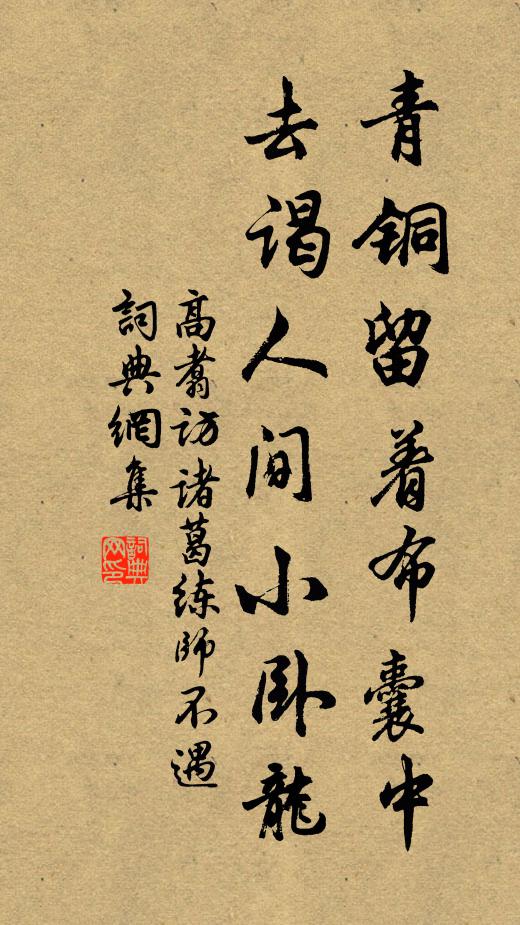 青铜留着布囊中
去谒人间小卧龍
高翥访诸葛练師不遇
詞典網集
詞典网印